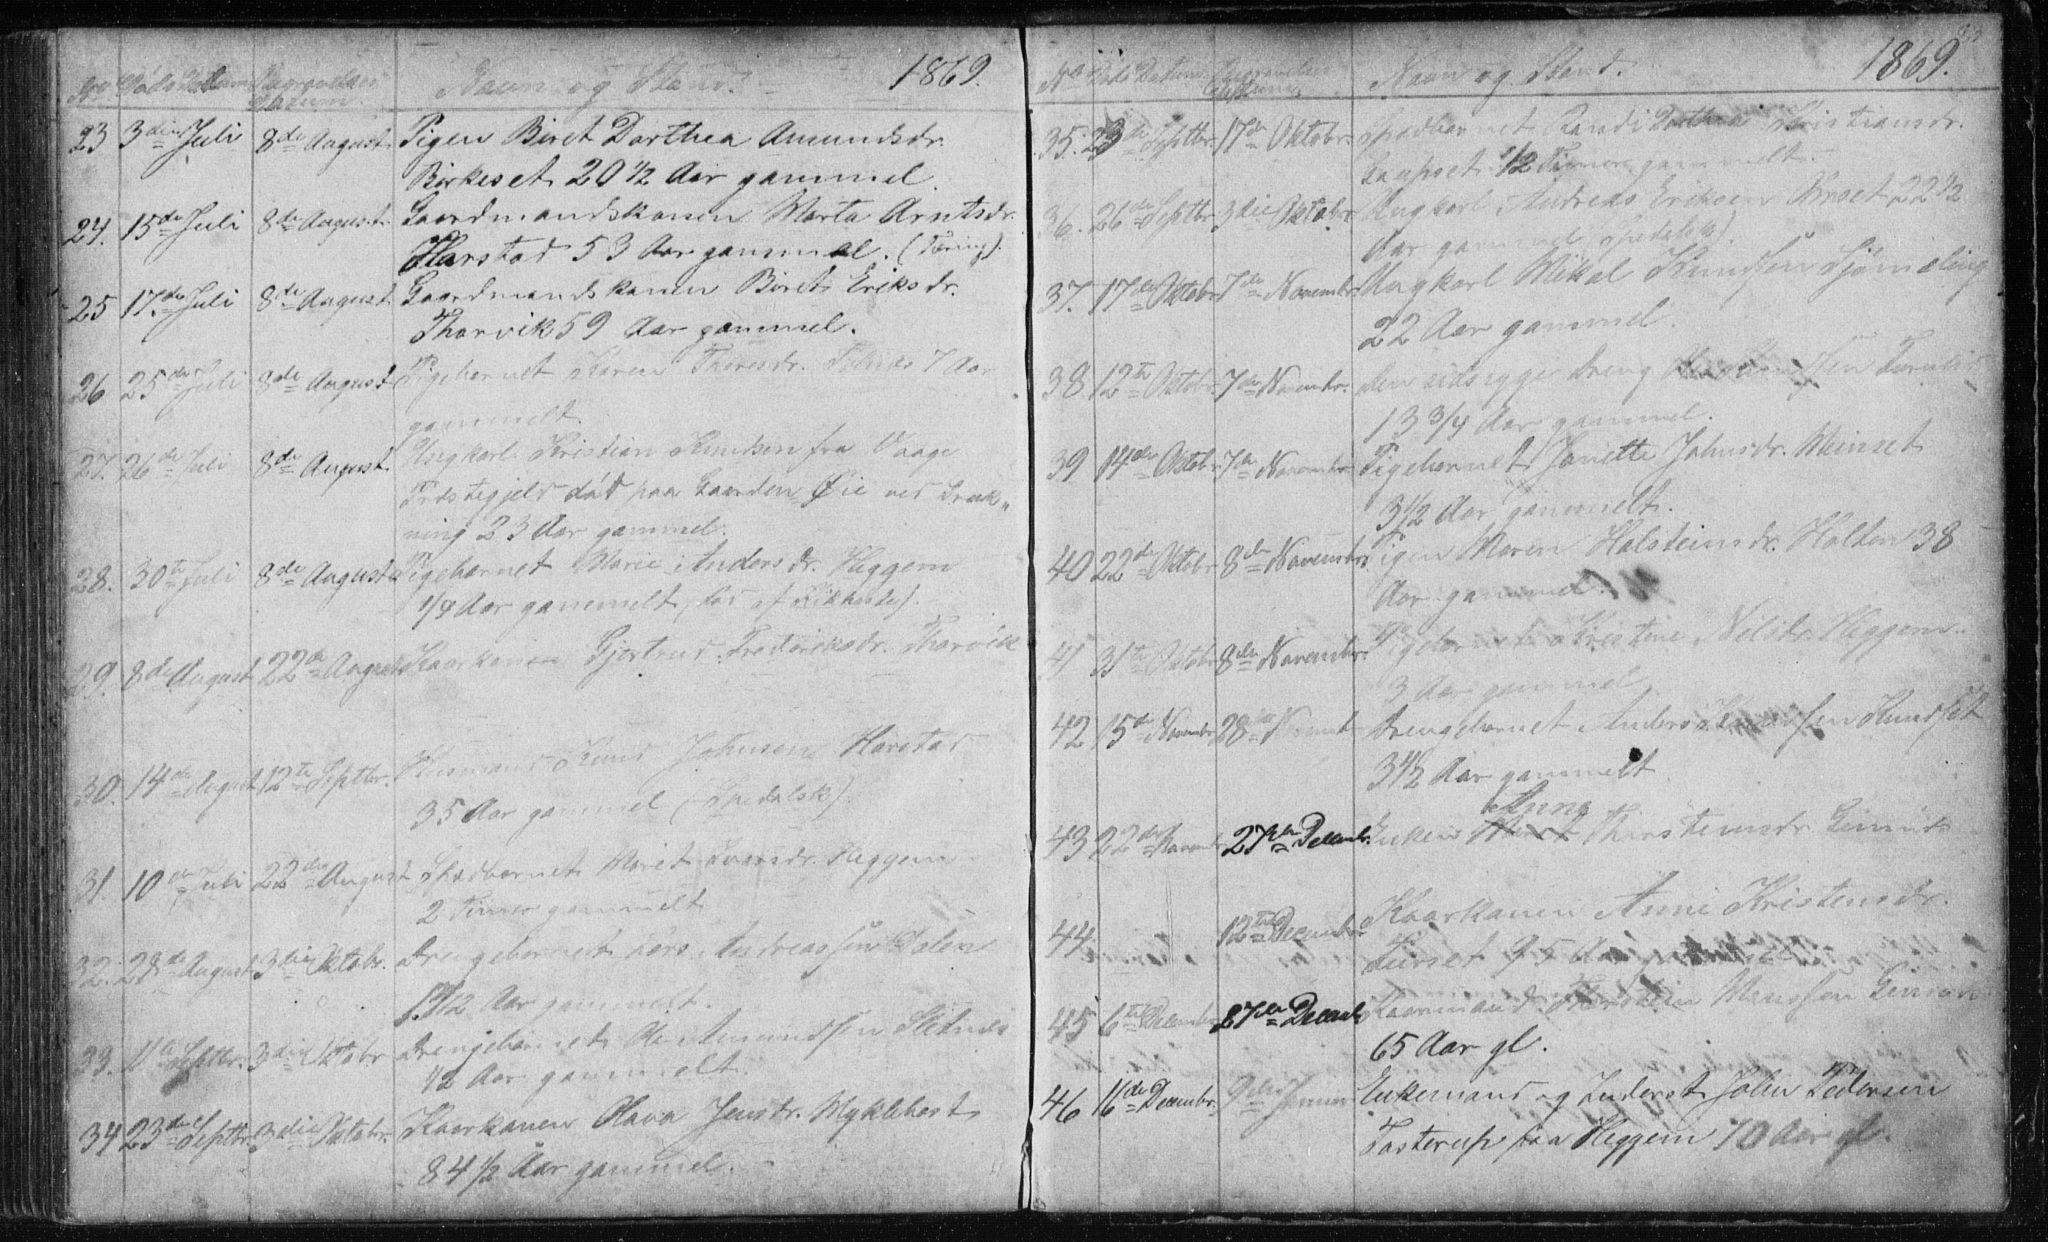 1869.
No Døds Datum Begravelses Datum. Navn og Stand.
23 3die Juli 8de August Pigen Biret Dorthea Amundsdr.
Birkeset 20 1/2 Aar gammel.
24. 15de Juli 8de August Gaardmandskonen Marta Arntsdr.
Harstad 53 Aar gammel. (Tæring).
25 17de Juli 8de August Gaardmandskonen Biret Eriksdr.
Thorvik 59 Aar gammel.
26 25de Juli 8de August Pigebarnet Karen 7 Aar
gammelt.
27. 26de Juli 8de August Ungkarl Kristian Knudsen fra Vaage
Præstegjeld død paa Gaarden Øie ved Druk„
ning 23 Aar gammel.
28. 30te Juli 8de August Pigebarnet Marie Andersdr. Heggem
1/4 Aar gammelt (død af Kikhoste).
29. 8de August 22de August Kaarkonen Gjertrud Frederiksdr. Thorvik
30. 14de August 12te Septbr. Husmand Knud Johnsen Harstad
35 Aar gammel (Spedalsk).
31. 10de Juli 22de August Spædbarnet Marit Iversdr. Heggem
2 Timer gammelt
32. 28de August 3die Oktobr. Drengebarnet Lars Andreassen Dalen
1 1/2 Aar gammelt.
33. 11te Septbr. 3die Oktobr Drengebarnet Ole Amundsen
1/2 Aar gammelt.
34 23de Septbr. 3die Oktobr. Kaarkonen Olava Jensdr. Myklebost
84 1/2 Aar gammel.
1869.
No Døds Datum Begravelses Datum. Navn og Stand.
35. 23de Septbr. 17de Oktobr. Spædbarnet Randi Dorthea Kristiansdr.
1/2 Time gammelt.
36. 26de Septbr. 3die Oktobr. Ungkarl Andreas Eriksen 22 1/2
Aar gammel (Spedalsk).
37. 17de Oktobr 7de Novembr. Ungkarl Mikal Knudsen
22 Aar gammel.
38. 12te Oktobr. 7de Novembr. den sidsyge Dreng
13 3/4 Aar gammel.
39 14de Oktobr 7de Novembr. Pigebarnet Janette Johnsdr.
3 1/2 Aar gammelt.
40 22de Oktobr 8de Novembr Pigen Maren Halsteinsdr. Holten 38
Aar gammel.
41 31te Oktobr 8de Novembr. Pigebarnet Kristine Nilsdr. Heggem
3 Aar gammel.
42 15de Novembr 28de Novemb Drengebarnet Anders Knudset
3 1/2 Aar gammelt
Anna
43 22de Novembr 27de Decembr. Enken Thorsteinsdr.
44 12te Decembr. Kaarkonen Anne Kristensdr.
95 Aar
45 6te Decembr 27de Decemb Kaarmand
65 Aar gl.
46 16de Decembr. 9de Januar Enkemand og Inderst John Pedersen
paa Heggem 70 Aar gl.